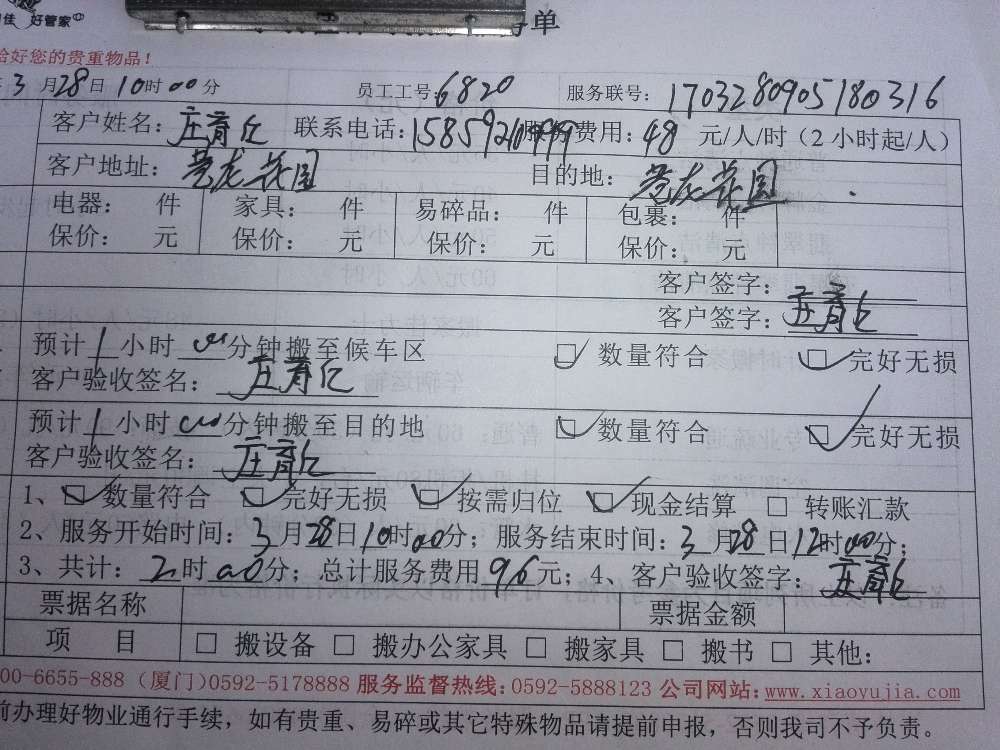 佳 好管家
单
好您的贵重物品！
3月28日10时00分 员工工号：6820 服务联号：1703280905180316
客户姓名：庄育亿 联系电话：15859210999 服务费用：48 元/人/时（2小时起/人）
客户地址：苍龙花园 目的地：苍龙花园
电器： 件 家具： 件 易碎品： 件 包裹： 件
保价： 元 保价： 元 保价： 元 保价： 元
客户签字：庄育亿
客户签字：庄育亿
预计1小时00分钟搬至候车区 数量符合 完好无损
客户验收签名：庄育亿
预计1小时00分钟搬至目的地 数量符合 完好无损
客户验收签名：庄育亿
1、数量符合 完好无损 按需归位 现金结算 转账汇款
2、服务开始时间：3月28日10时00分；服务结束时间：3月28日12时00分；
3、共计：2时00分；总计服务费用96元；4、客户验收签字：庄育亿
票据名称 票据金额
项 目 □ 搬设备 □ 搬办公家具 □ 搬家具 □ 搬书 □ 其他：
00-6655-888（厦门）0592-5178888 服务监督热线：0592-5888123 公司网站：www.xiaoyujia.com
前办理好物业通行手续，如有贵重、易碎或其它特殊物品请提前申报，否则我司不予负责。